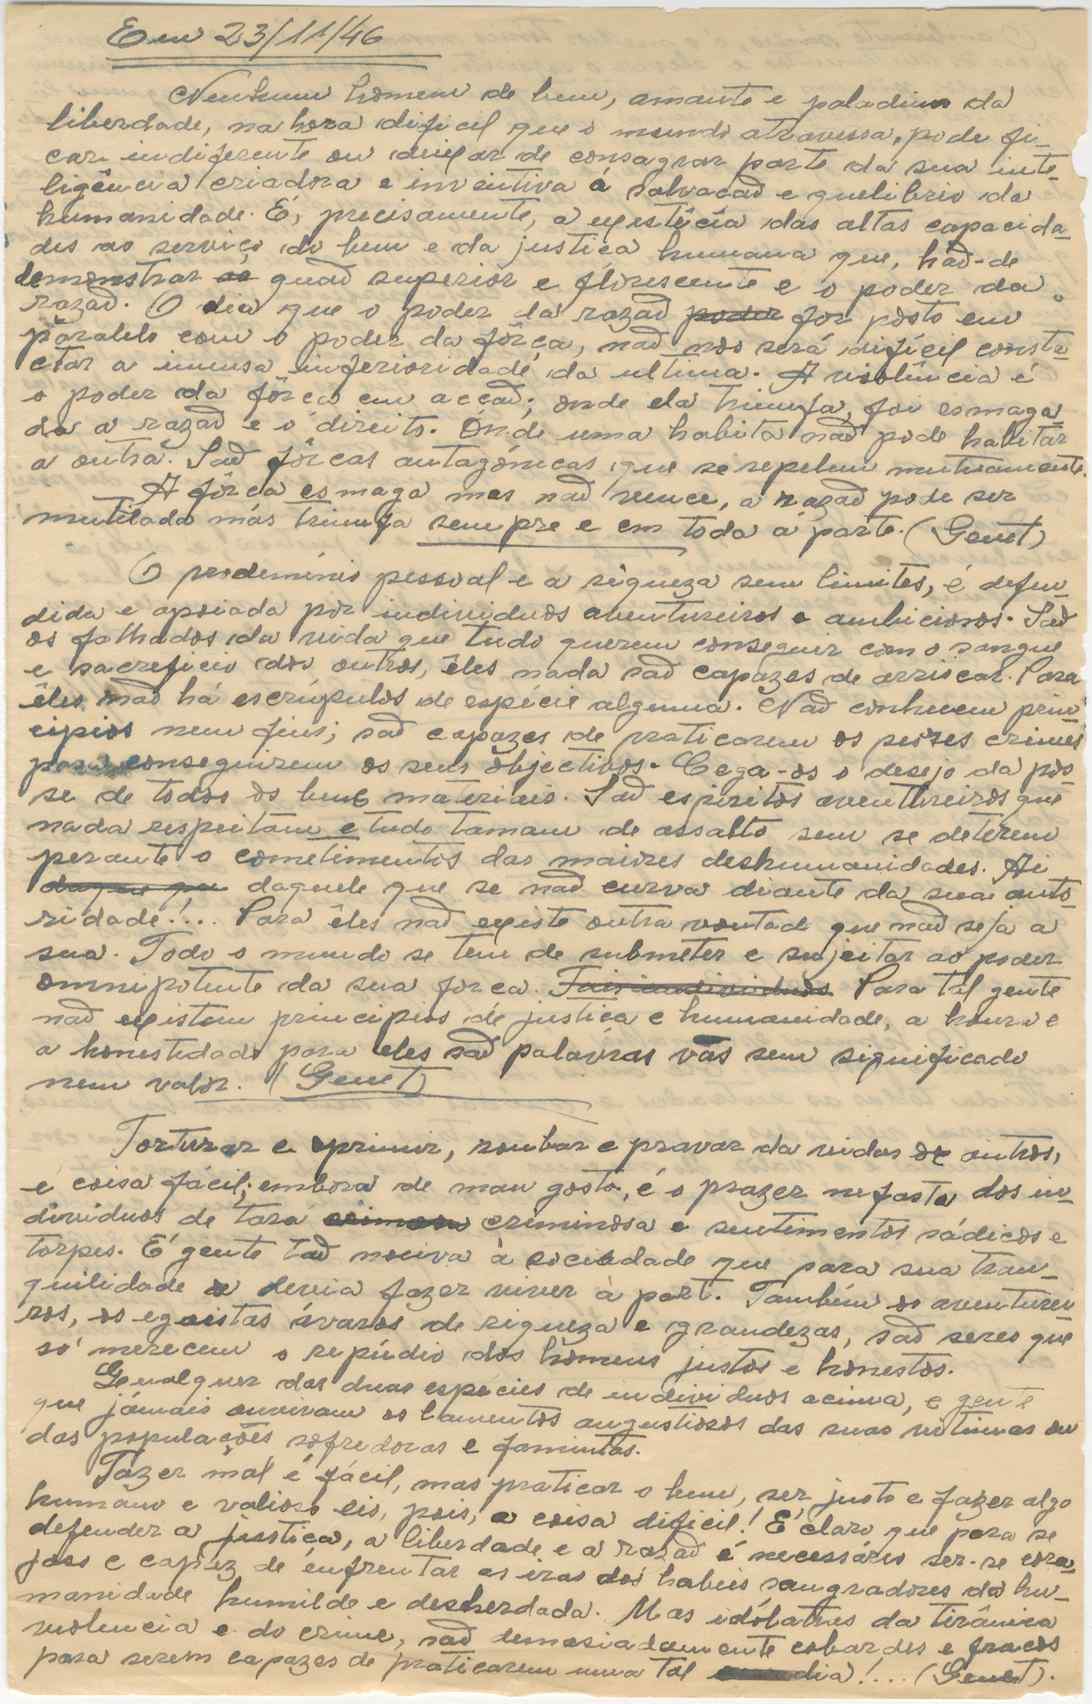 Em 23/11/46
Nenhum homem de bem, amante e paladino da
liberdade, na hora dificil que o mundo atravessa, pode fi-
car indiferente ou deixar de consagrar parte da sua inte-
ligência criadora e inventiva á salvacaõ e quelibrio da
humanidade. É, precisamente, a existêcia das altas capacida-
des ao serviço do bem e da justica humana que, haõ-de
demonstrar ao quaõ superior e florescente e o poder da
razaõ. O dia que o poder da razaõ poder for posto em
paralelo com o poder da fôrça, naõ nos será difícil consta-
ctar a imensa inferioridade da ultima. A violência é
o poder da fôrca em accaõ; onde ela triunfa, foi esmaga-
da a razaõ e o direito. Onde uma habita naõ pode habitar
a outra. Saõ fôrcas antagónicas que se repelem mutuamente.
A força esmaga mas naõ vence, a razaõ pode ser
mutilada más triunfa sempre e em toda a parte. (Genet)
O perdeminio pessoal e a riqueza sem limites, é defen-
dida e apoiada por individuos aventureiros e ambiciosos. Saõ
os falhados da vida que tudo querem conseguir com o sangue
e sacreficio dos outros, êles nada saõ capazes de arriscar. Para
êles naõ há escrúpulos de espécie alguma. Naõ conhecem prin-
cipios nem fins; saõ capazes de praticarem os peores crimes
para conseguirem os seus objectivos. Cega-os o desejo da pos-
se de todos os bens materiais. Saõ espiritos aventureiros que
nada respeitam e tudo tamam de assalto sem se deterem
perante o cometimentos das maiores deshumanidades. Ai
daquele que se naõ curva diante da sua auto-
ridade!... Para êles naõ existe outra vontad que naõ seja a
sua. Todo o mundo se tem de submeter e sujeitar ao poder
omnipotente da sua forca. Para tal gente
naõ existem principios de justica e humanidade, a honra e
a honestidade para eles saõ palavras vãs sem significado
nem valor. (Genet)
Torturar e oprimir, roubar e pravar da vidas os outros,
é coisa fácil; embora de mau gosto, é o prazer nefasto dos in-
dividuos de tara criminosa e sentimentos sádicos e
torpes. É gente taõ nociva à sociedade que para sua tran-
quilidade se devia fazer viver à part. Também os aventurei-
ros, os egoistas ávaros de riqueza e grandezas, saõ seres que
só merecem o repúdio dos homens justos e honestos.
Qualquer das duas espécies de individuos acima, e gente
que jámais ouviram os lamentos angustiosos das suas vitimas ou
das populações sofredoras e famintas.
Fazer mal é fácil, mas praticar o bem, ser justo e fazer algo
humano e valioso eis, pois, a coisa dificil! É claro que para se
defender a justiça, a liberdade e a razaõ é necessário ser-se cora-
joso e capaz de enfrentar as iras dos habeis sangradores da hu-
manidade humilde e desherdada. Mas idólatras da tirânica
violencia e do crime, saõ demasiadamente cobardes e fracos
para serem capazes de praticarem uma tal !... (Genet).